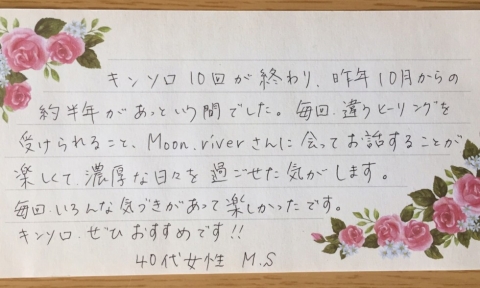 キンソロ10回が終わり、昨年10月からの
約半年があっという間でした。毎回、違うヒーリングを
受けられること、Moon.riverさんに会ってお話することが
楽しくて、濃厚な日々を過ごせた気がします。
毎回、いろんな気づきがあって楽しかったです。
キンソロ、ぜひおすすめです!!
40代女性 M.S